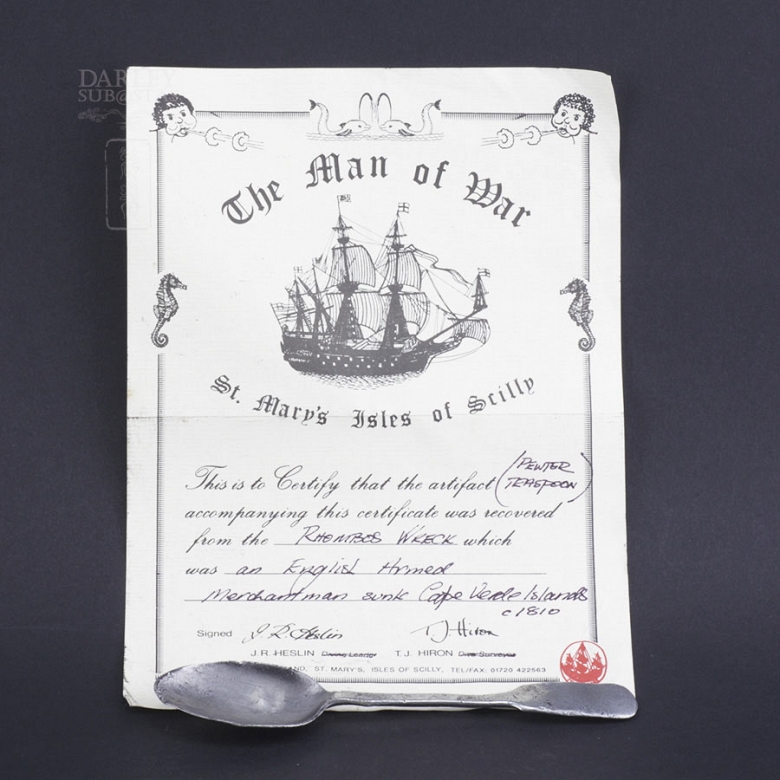 DARLEY
SUB@ST
The Man of War
St. Mary's Isles of Scilly
This is to Certify that the artifact (PEWTER TEASPOON)
accompanying this certificate was recovered
from the RHOMBOS WRECK which
was an English Armed
Merchantman sunk Cape Verde Islands
c1810
Signed J.R. Heslin T.J. Hiron
J.R. HESLIN Diving Leader T.J. HIRON Dive Surveyor
AND, ST. MARY'S, ISLES OF SCILLY, TEL/FAX: 01720 422563